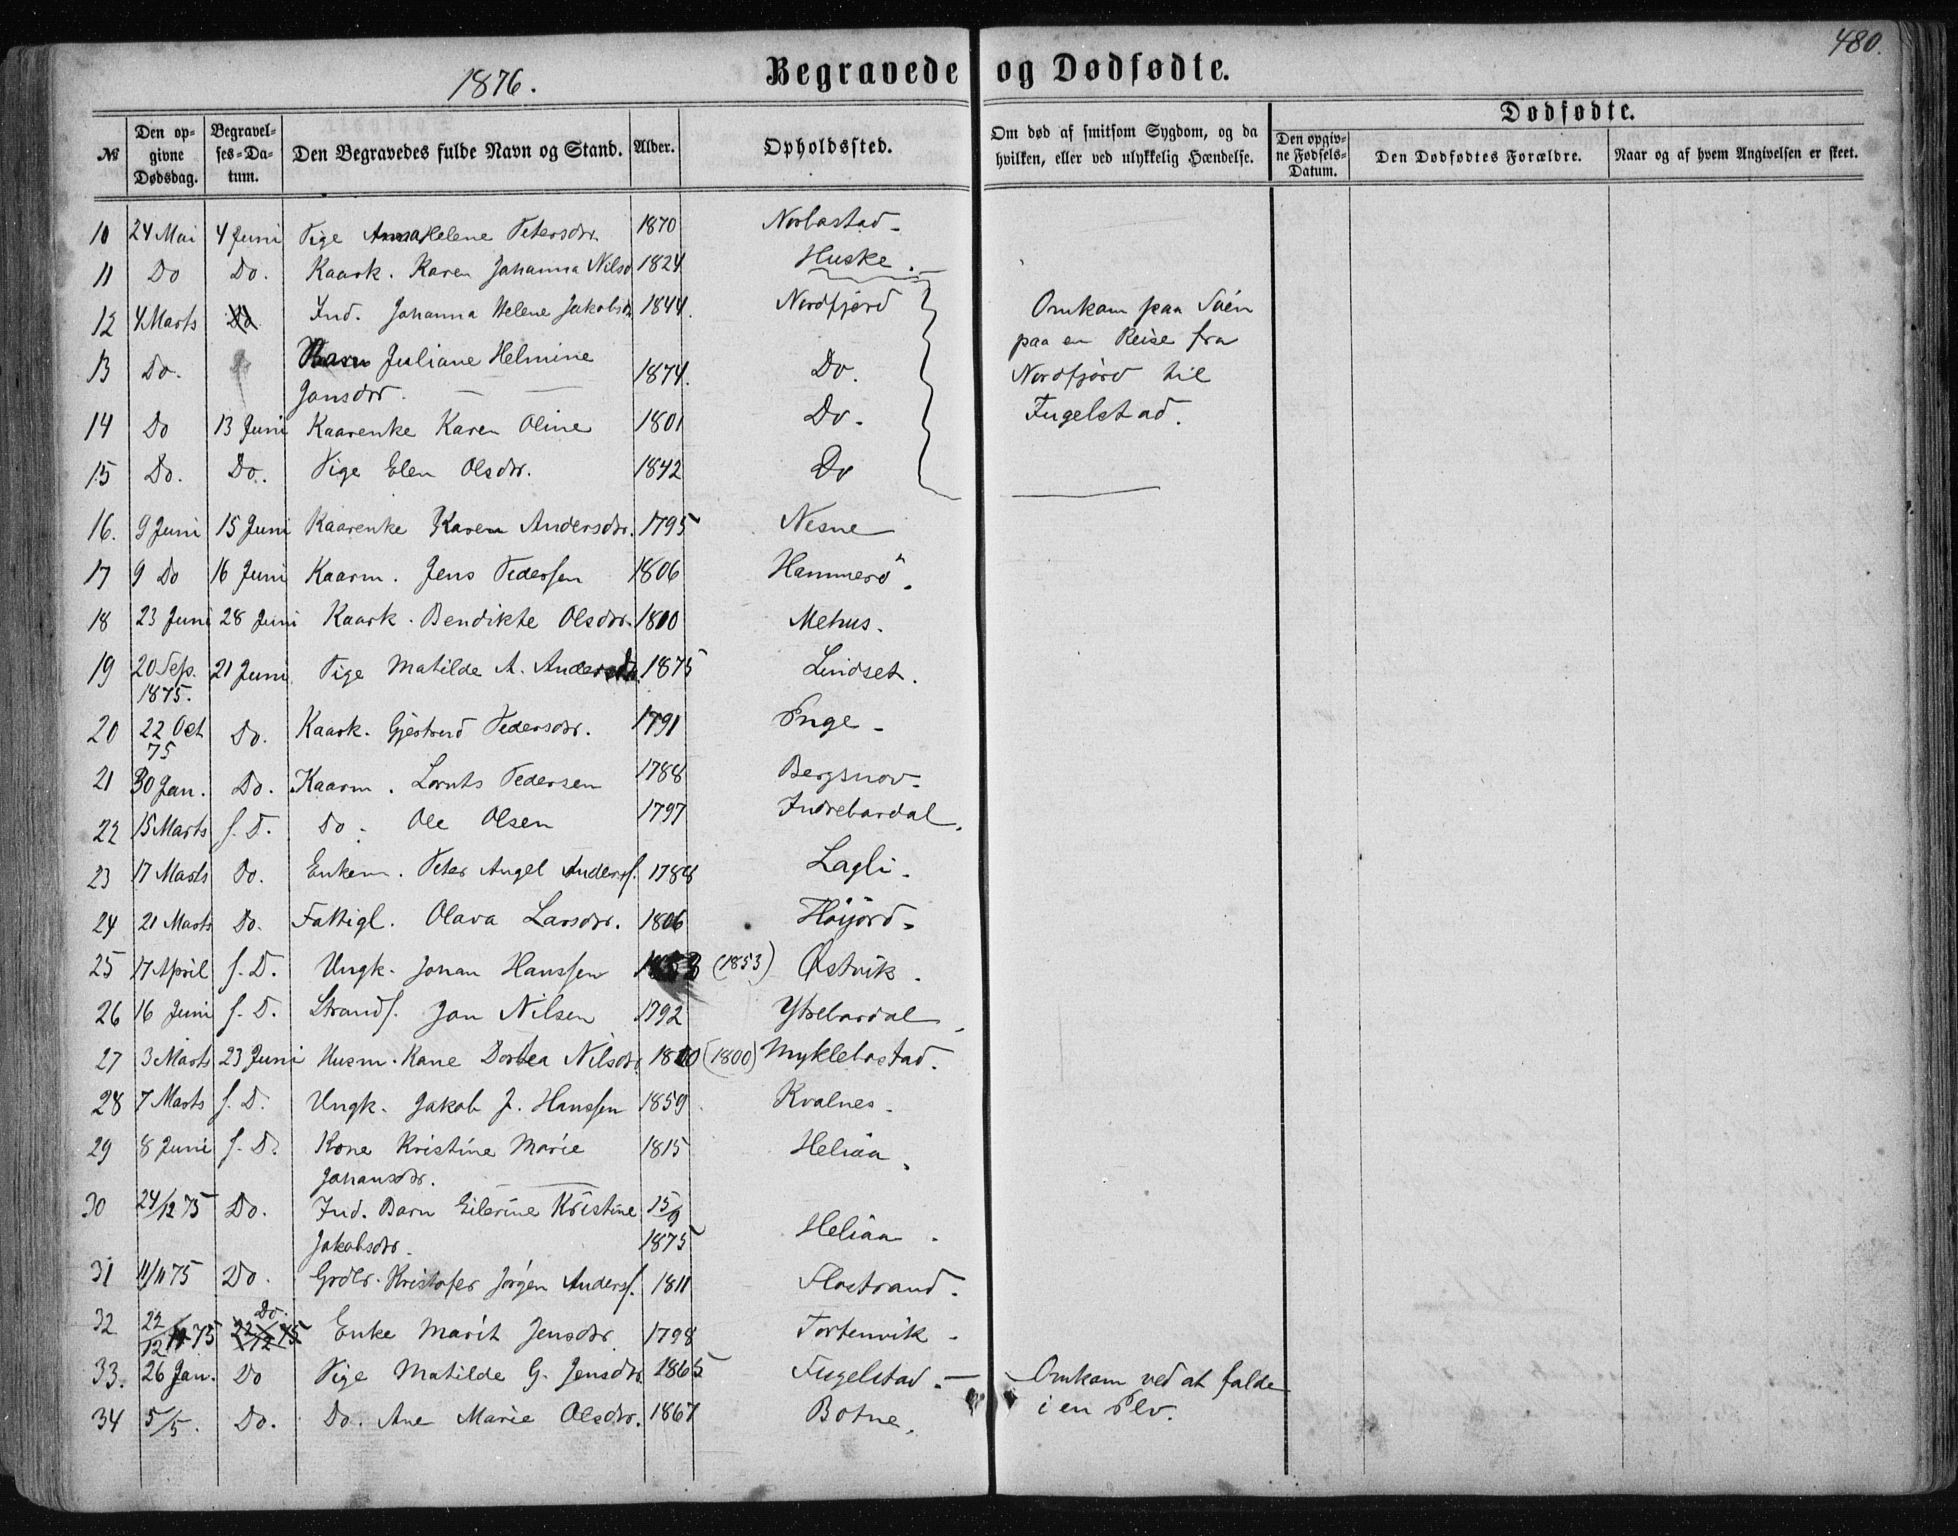 480.
1876. Begravede og Dødfødte.
№ Den opgivne Dødsdag. Begravelses-Datum. Den Begravedes fulde Navn og Stand. Alder. Opholdssted. Om død af smitsom Sygdom, og da hvilken, eller ved ulykkelig Hændelse. Dødfødte. Den opgivne Fødsels-Datum. Den Dødfødtes Forældre. Naar og af hvem Angivelsen er skeet.
10 24 Mai 4 Juni Pige Anna Helene Petersdr. 1870 Norbostad
11 Do Do. Kaark. Karen Johanna Nilsd 1824 Huske.
12 4 Marts Do Ind. Johanna Helene Jakobsdr 1844. Nordfjord Omkom paa Søen
paa en Reise fra
13 Do. Do Barn Juliane Helmine 1874. Do. Nordfjord til
Jansdr.
14 Do 13 Juni Kaarenke Karen Oline 1801 Do. Fugelstad.
15 Do. Do. Pige Elen Olsdr. 1842 Do
16. 9 Juni 15 Juni Kaarenke Karen Andersdr. 1795 Nesne
17 9 Do 16 Juni Kaarm. Jens Pedersen 1806 Hammerö.
18 23 Juni 28 Juni Kaark. Bendikte Olsdr. 1800 Mehus.
19 20 Sep. 21 Juni Pige Matilde A. Andersdr. 1875 Lindset.
1875.
20 22 Oct Do. Kaark. Gjertrud Pedersdr. 1791 Enge
75
21 30 Jan. Do. Kaarm. Lornts Pedersen 1788 Bergsnov
22 15 Marts s. D. Do. Ole Olsen 1797 Indrebardal.
23 17 Marts Do. Enkem. Peter Angel Anders. 1788 Lagli.
24 21 Marts Do. Fattigl. Olava Larsdr. 1806 Höijord
25 17 April s. D. Ungk. Johan Hanssen 1853 (1853) Østvik.
26 16 Juni s. D. Strands. Jon Nilsen 1792 Ytrebardal
27 3 Marts 23 Juni Husm. Kone Dortea Nilsdr. 1800 (1800) Myklebostad.
28 7 Marts s. D. Ungk. Jakob J. Hanssen 1859. Kvalnes.
29 8 Juni s. D. Kone Kristine Marie 1815 Heliaa.
Johansdr.
30 24/12 75 Do. Ind. Barn Eilerine Kristine 15/9
Jakobsdr. 1875 Heliaa.
31 11/11 75 Do. Grdbr. Kristofer Jörgen Anders. 1811 Flostrand.
32 22/12 75 22/12 75 Do. Enke Marit Jensdr. 1798 Tortenvik
33. 26 Jan. Do Pige Matilde G. Jensdr. 1865 Fugelstad. Omkom ved at falde
34 5/5. Do. Do. Ane Marie Olsdr. 1867 Botne. i en Elv.